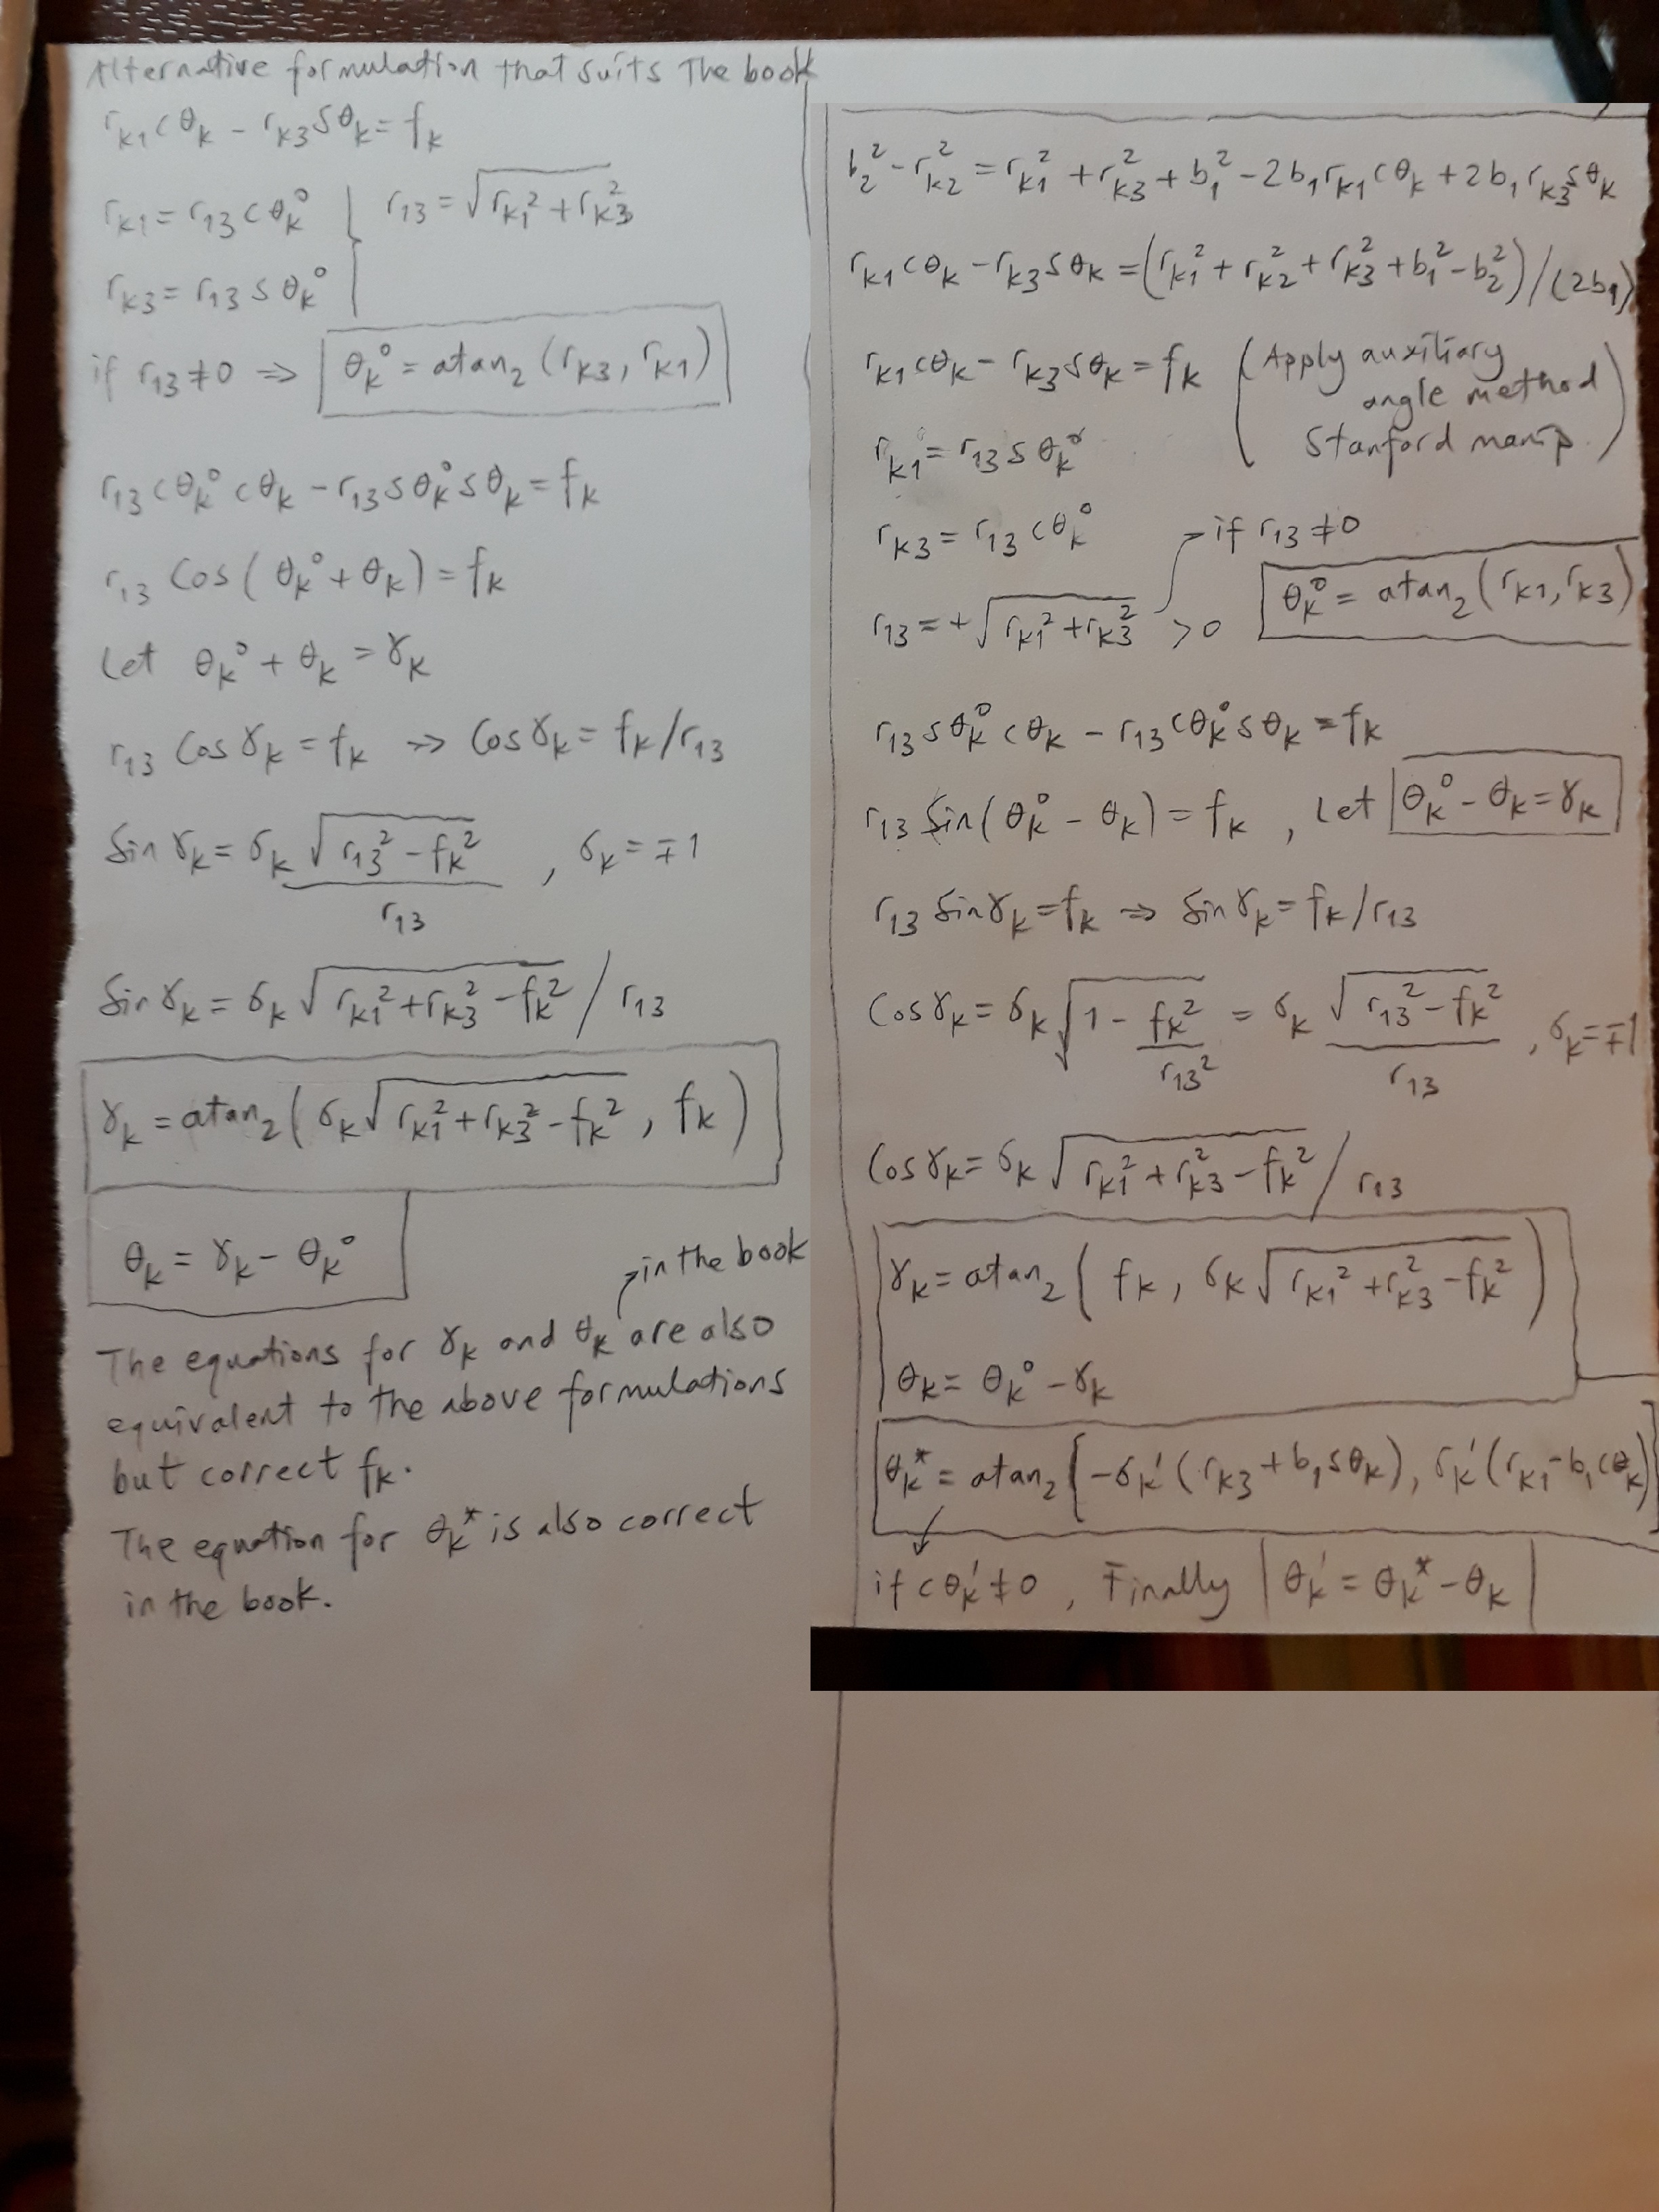 Alternative formulation that suits the book
r_k1 cθ_k - r_k3 sθ_k = f_k
r_k1 = r_13 cθ_k°
r_13 = √(r_k1² + r_k3²)
r_k3 = r_13 sθ_k°
if r_13 ≠ 0 ⇒ θ_k° = atan_2 (r_k3, r_k1)
r_13 cθ_k° cθ_k - r_13 sθ_k° sθ_k = f_k
r_13 Cos(θ_k° + θ_k) = f_k
Let θ_k° + θ_k = γ_k
r_13 Cosγ_k = f_k ⇒ Cosγ_k = f_k/r_13
Sinγ_k = σ_k √(r_13² - f_k²) / r_13 , σ_k = ∓1
Sinγ_k = σ_k √(r_k1² + r_k3² - f_k²) / r_13
γ_k = atan_2 (σ_k √(r_k1² + r_k3² - f_k²), f_k)
θ_k = γ_k - θ_k°
in the book
The equations for γ_k and θ_k are also
equivalent to the above formulations
but correct f_k.
The equation for θ_k* is also correct
in the book.
b_2² - r_k2² = r_k1² + r_k3² + b_1² - 2b_1 r_k1 cθ_k + 2b_1 r_k3 sθ_k
r_k1 cθ_k - r_k3 sθ_k = (r_k1² + r_k2² + r_k3² + b_1² - b_2²)/(2b_1)
r_k1 cθ_k - r_k3 sθ_k = f_k (Apply auxiliary
angle method
Stanford manip.)
r_k1 = r_13 sθ_k°
r_k3 = r_13 cθ_k°
if r_13 ≠ 0
r_13 = +√(r_k1² + r_k3²) > 0
θ_k° = atan_2 (r_k1, r_k3)
r_13 sθ_k° cθ_k - r_13 cθ_k° sθ_k = f_k
r_13 Sin(θ_k° - θ_k) = f_k , Let θ_k° - θ_k = γ_k
r_13 Sinγ_k = f_k ⇒ Sinγ_k = f_k/r_13
Cosγ_k = σ_k √(1 - f_k²/r_13²) = σ_k √(r_13² - f_k²) / r_13 , σ_k = ∓1
Cosγ_k = σ_k √(r_k1² + r_k3² - f_k²) / r_13
γ_k = atan_2 (f_k, σ_k √(r_k1² + r_k3² - f_k²))
θ_k = θ_k° - γ_k
θ_k* = atan_2 [-σ_k' (r_k3 + b_1 sθ_k), σ_k' (r_k1 - b_1 cθ_k)]
if cθ_k' ≠ 0 , Finally θ_k' = θ_k* - θ_k